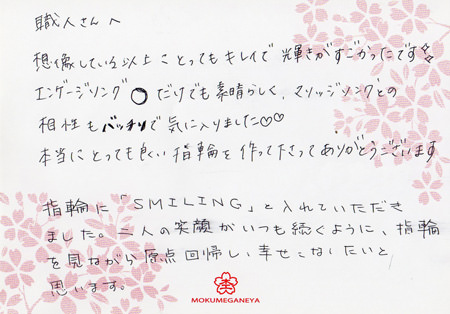 職人さんへ
想像している以上 とってもキレイで輝きがすごかったです
エンゲージリング だけでも素晴らしく、マリッジリングとの
相性もバッチリで気に入りました♡♡
本当にとっても良い指輪を作って下さってありがとうございます
指輪に「SMILING」と入れていただき
ました。二人の笑顔がいつも続くように、指輪
を見ながら原点回帰し、幸せになりたいと
思います。
MOKUMEGANEYA